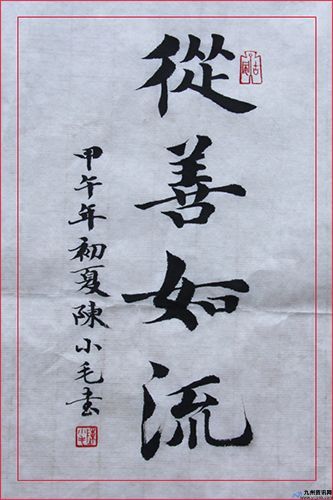 從善如流
甲午年初夏陳小毛書
九州资讯网